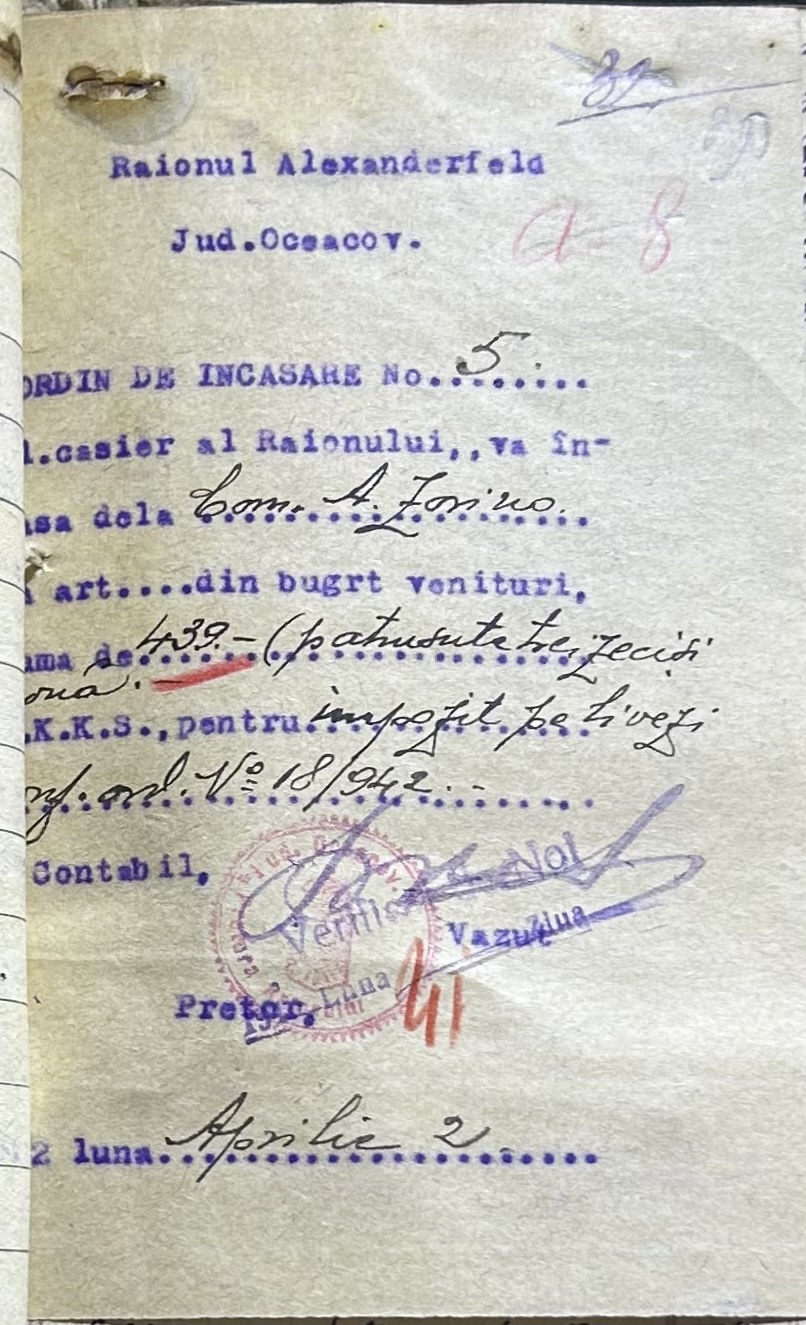 39
Raionul Alexanderfeld
a 8
Jud.Oceacov.
ORDIN DE INCASARE No. 5
l.casier al Raionului,,va în-
asa dela Com. A. Zorino.
art....din bugrt venituri,
ama de 439.- (patrusute treizecişi
ouă.
.K.K.S.,pentru impozit pe livezi
nf. ord. No 18/942.-
Contabil,
Noi
Verific
Vazut
Ziua
Luna
Pretor,
2 luna Aprilie 2